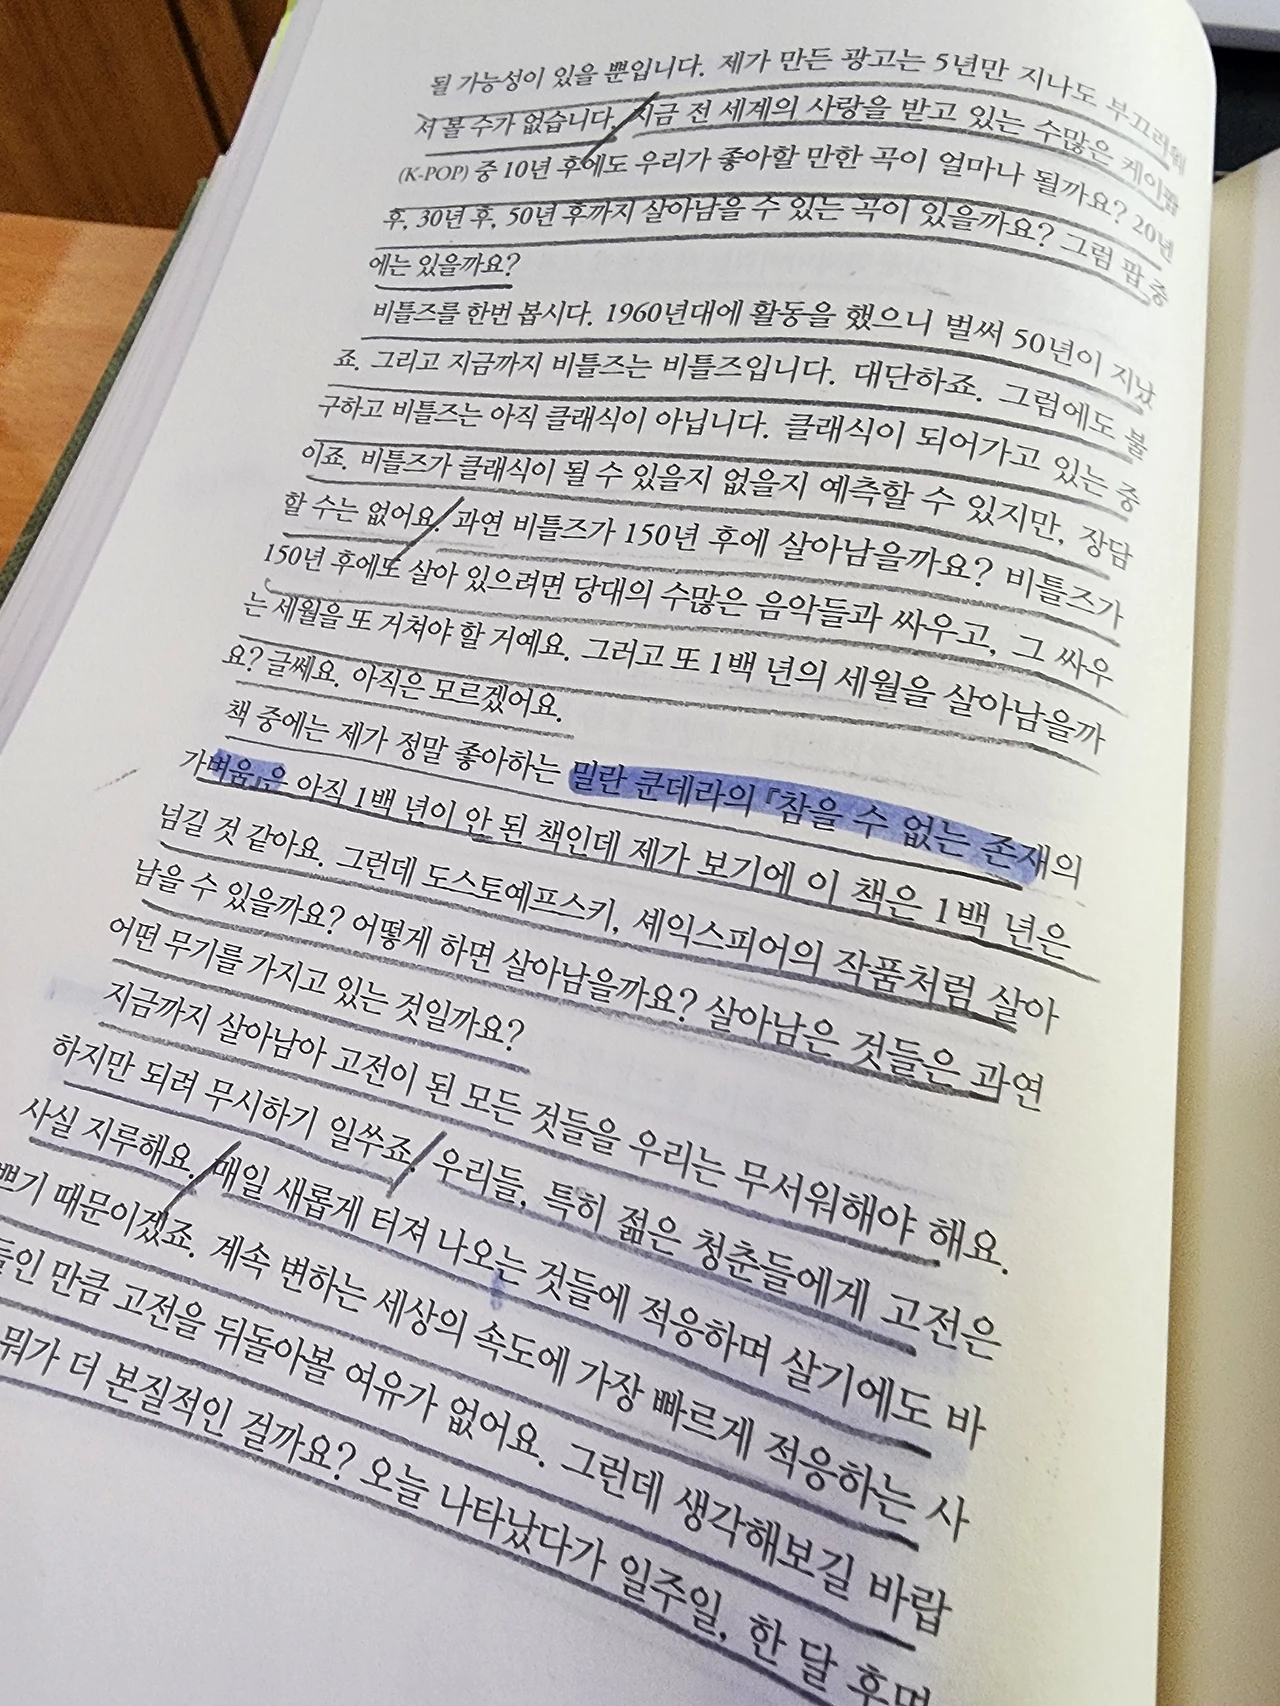 될 가능성이 있을 뿐입니다. 제가 만든 광고는 5년만 지나도 부끄러워
서 볼 수가 없습니다. 지금 전 세계의 사랑을 받고 있는 수많은 케이팝
(K-POP) 중 10년 후에도 우리가 좋아할 만한 곡이 얼마나 될까요? 20년
후, 30년 후, 50년 후까지 살아남을 수 있는 곡이 있을까요? 그럼 팝 중
에는 있을까요?
비틀즈를 한번 봅시다. 1960년대에 활동을 했으니 벌써 50년이 지났
죠. 그리고 지금까지 비틀즈는 비틀즈입니다. 대단하죠. 그럼에도 불
구하고 비틀즈는 아직 클래식이 아닙니다. 클래식이 되어가고 있는 중
이죠. 비틀즈가 클래식이 될 수 있을지 없을지 예측할 수 있지만, 장담
할 수는 없어요. 과연 비틀즈가 150년 후에 살아남을까요? 비틀즈가
150년 후에도 살아 있으려면 당대의 수많은 음악들과 싸우고, 그 싸우
는 세월을 또 거쳐야 할 거예요. 그러고 또 1백 년의 세월을 살아남을까
요? 글쎄요. 아직은 모르겠어요.
책 중에는 제가 정말 좋아하는 밀란 쿤데라의 『참을 수 없는 존재의
가벼움』은 아직 1백 년이 안 된 책인데 제가 보기에 이 책은 1백 년은
넘길 것 같아요. 그런데 도스토예프스키, 셰익스피어의 작품처럼 살아
남을 수 있을까요? 어떻게 하면 살아남을까요? 살아남은 것들은 과연
어떤 무기를 가지고 있는 것일까요?
지금까지 살아남아 고전이 된 모든 것들을 우리는 무서워해야 해요.
하지만 되려 무시하기 일쑤죠. 우리들, 특히 젊은 청춘들에게 고전은
사실 지루해요. 매일 새롭게 터져 나오는 것들에 적응하며 살기에도 바
쁘기 때문이겠죠. 계속 변하는 세상의 속도에 가장 빠르게 적응하는 사
들인 만큼 고전을 뒤돌아볼 여유가 없어요. 그런데 생각해보길 바랍
뭐가 더 본질적인 걸까요? 오늘 나타났다가 일주일, 한 달 후면